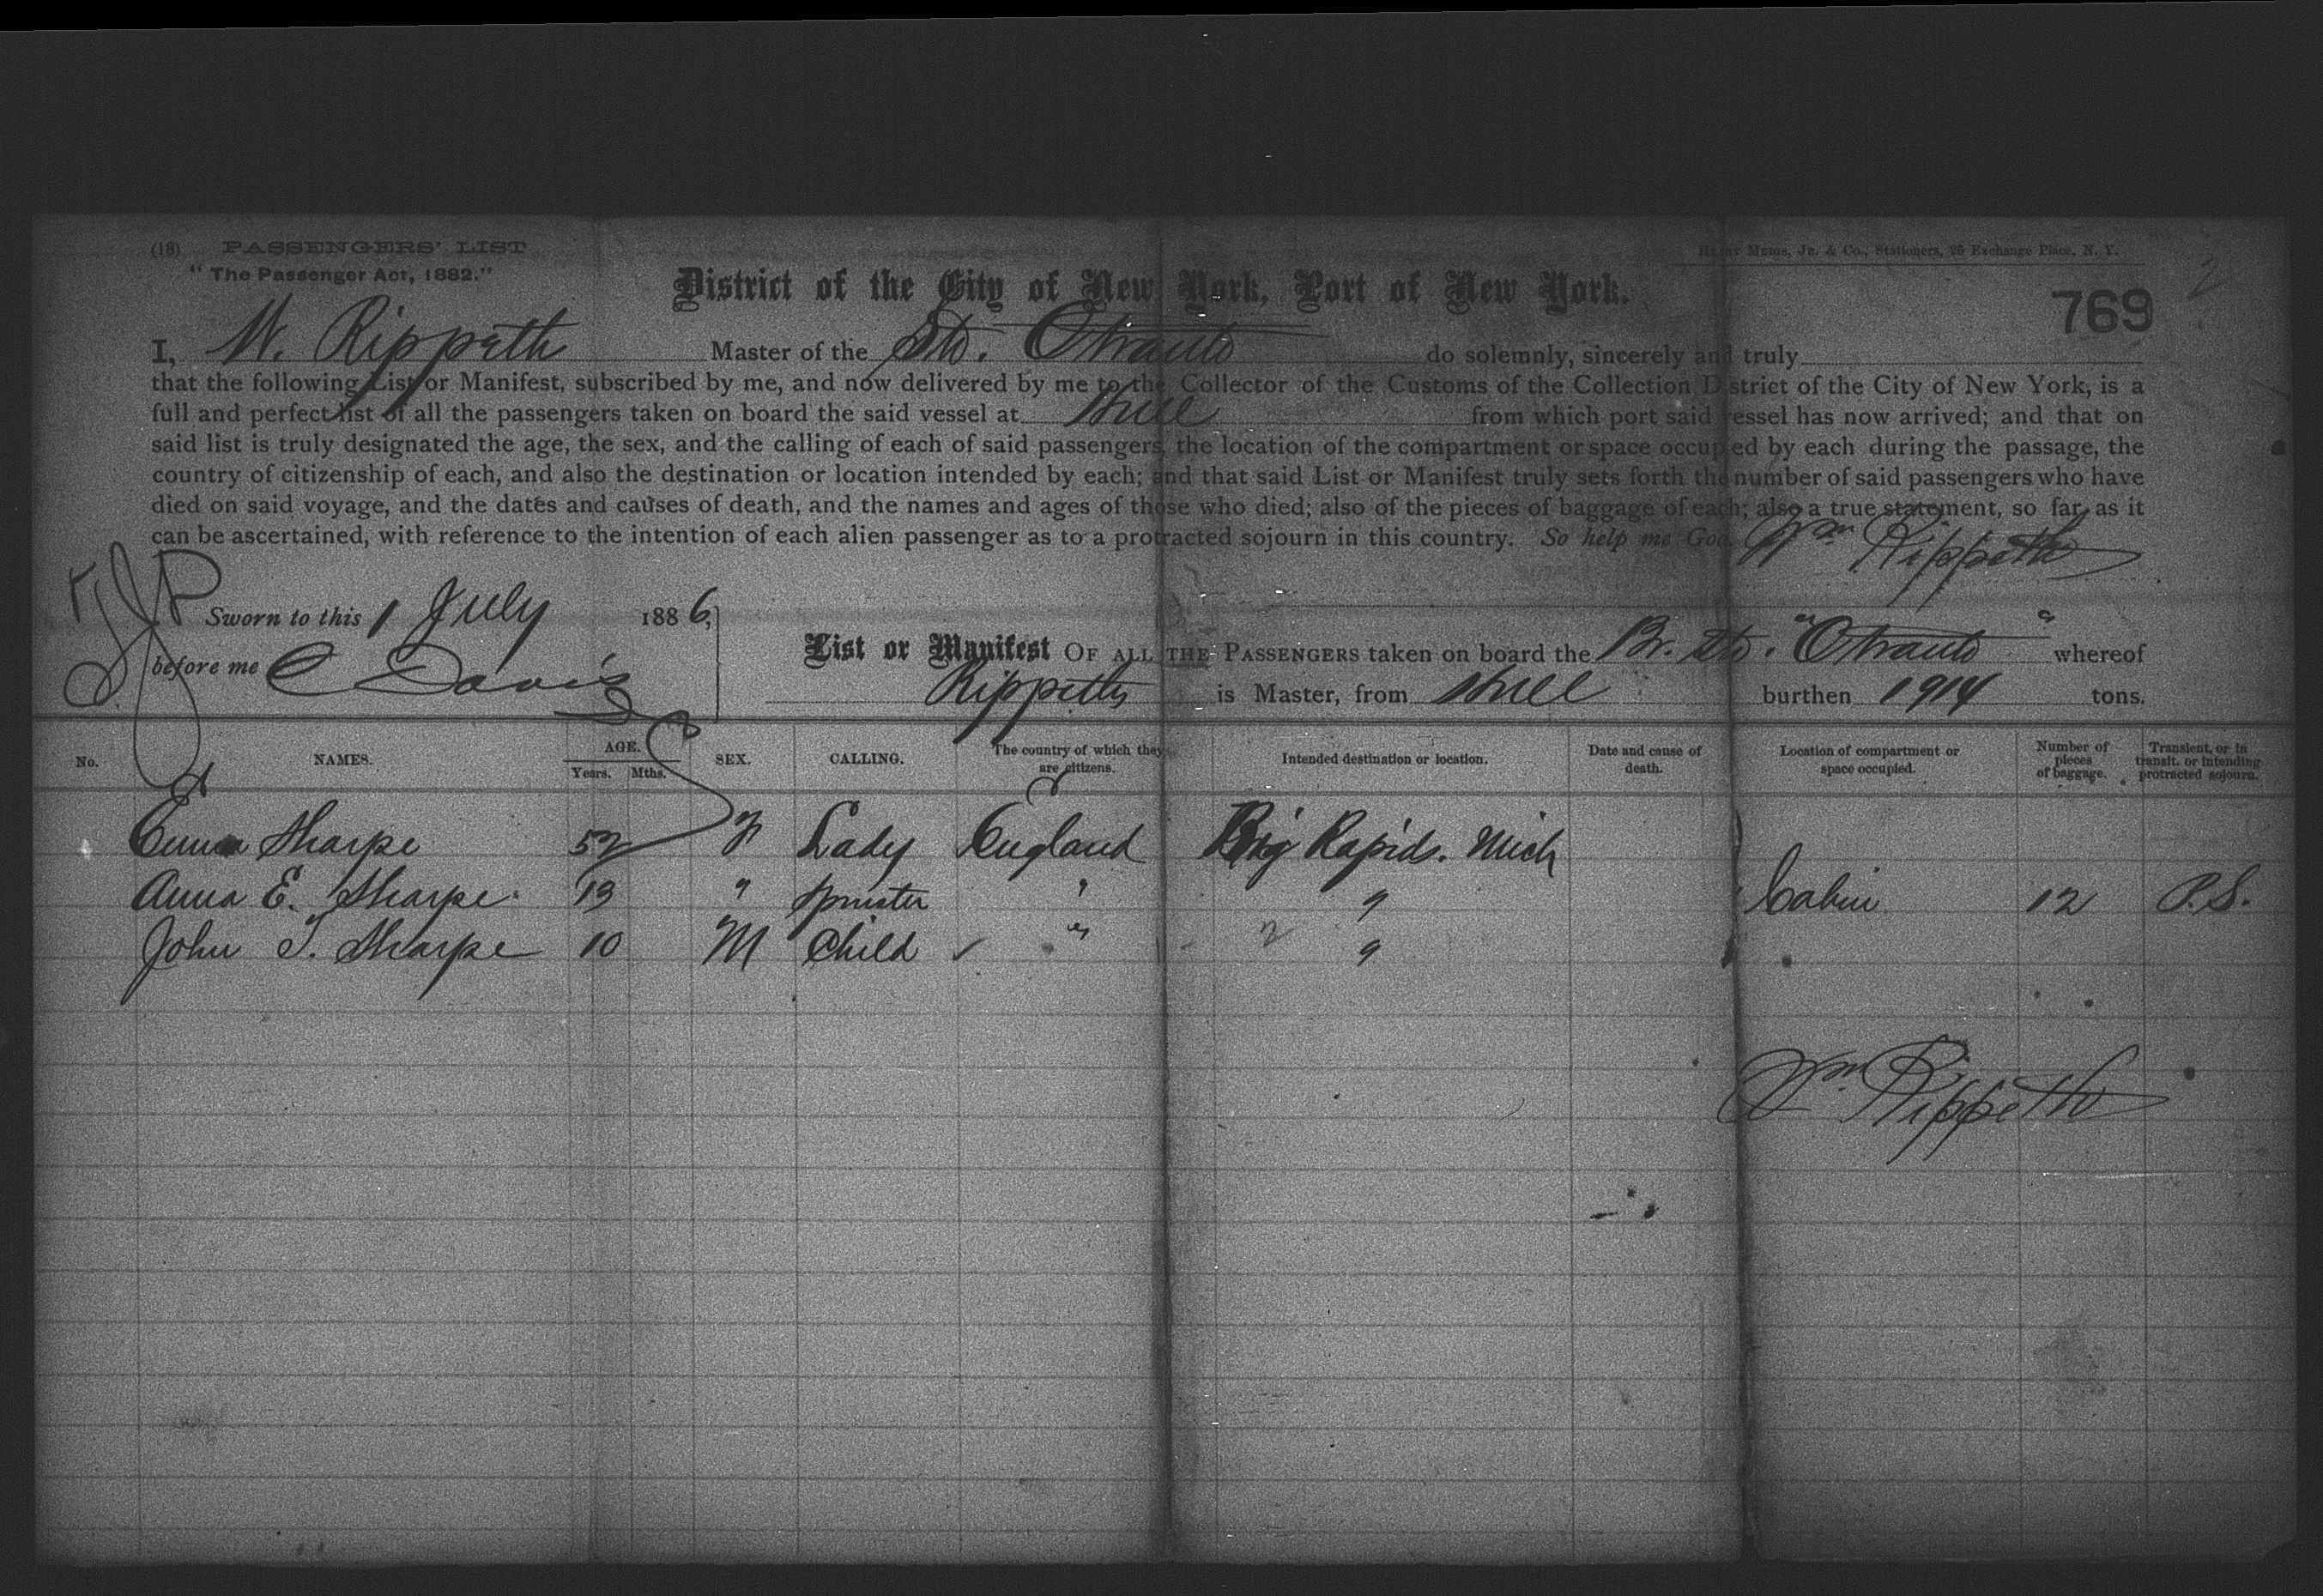 (18) PASSENGERS' LIST
"The Passenger Act, 1882."
Stationers, 25 Exchange Place, N. Y.
District of the City of New York, Port of New York.
769
2
I, W. Rippeth Master of the Str. Otranto do solemnly, sincerely and truly
that the following List or Manifest, subscribed by me, and now delivered by me to the Collector of the Customs of the Collection District of the City of New York, is a
full and perfect list of all the passengers taken on board the said vessel at Hull from which port said vessel has now arrived; and that on
said list is truly designated the age, the sex, and the calling of each of said passengers, the location of the compartment or space occupied by each during the passage, the
country of citizenship of each, and also the destination or location intended by each; and that said List or Manifest truly sets forth the number of said passengers who have
died on said voyage, and the dates and causes of death, and the names and ages of those who died; also of the pieces of baggage of each; also a true statement, so far as it
can be ascertained, with reference to the intention of each alien passenger as to a protracted sojourn in this country. So help me God. Wm Rippeth
Sworn to this 1 July 1886,
before me C Davis
List or Manifest OF ALL THE PASSENGERS taken on board the Br. Str. "Otranto" whereof
Rippeth is Master, from Hull burthen 1914 tons.
No. NAMES. AGE. Years. Mths. SEX. CALLING. The country of which they are citizens. Intended destination or location. Date and cause of death. Location of compartment or space occupied. Number of pieces of baggage. Transient, or in transit, or intending protracted sojourn.
Emma Sharpe 52 F Lady England Big Rapids. Mich
Anna E. Sharpe 13 " Spinster " " Cabin 12 P.S.
John T. Sharpe 10 M Child " 2 "
Wm Rippeth